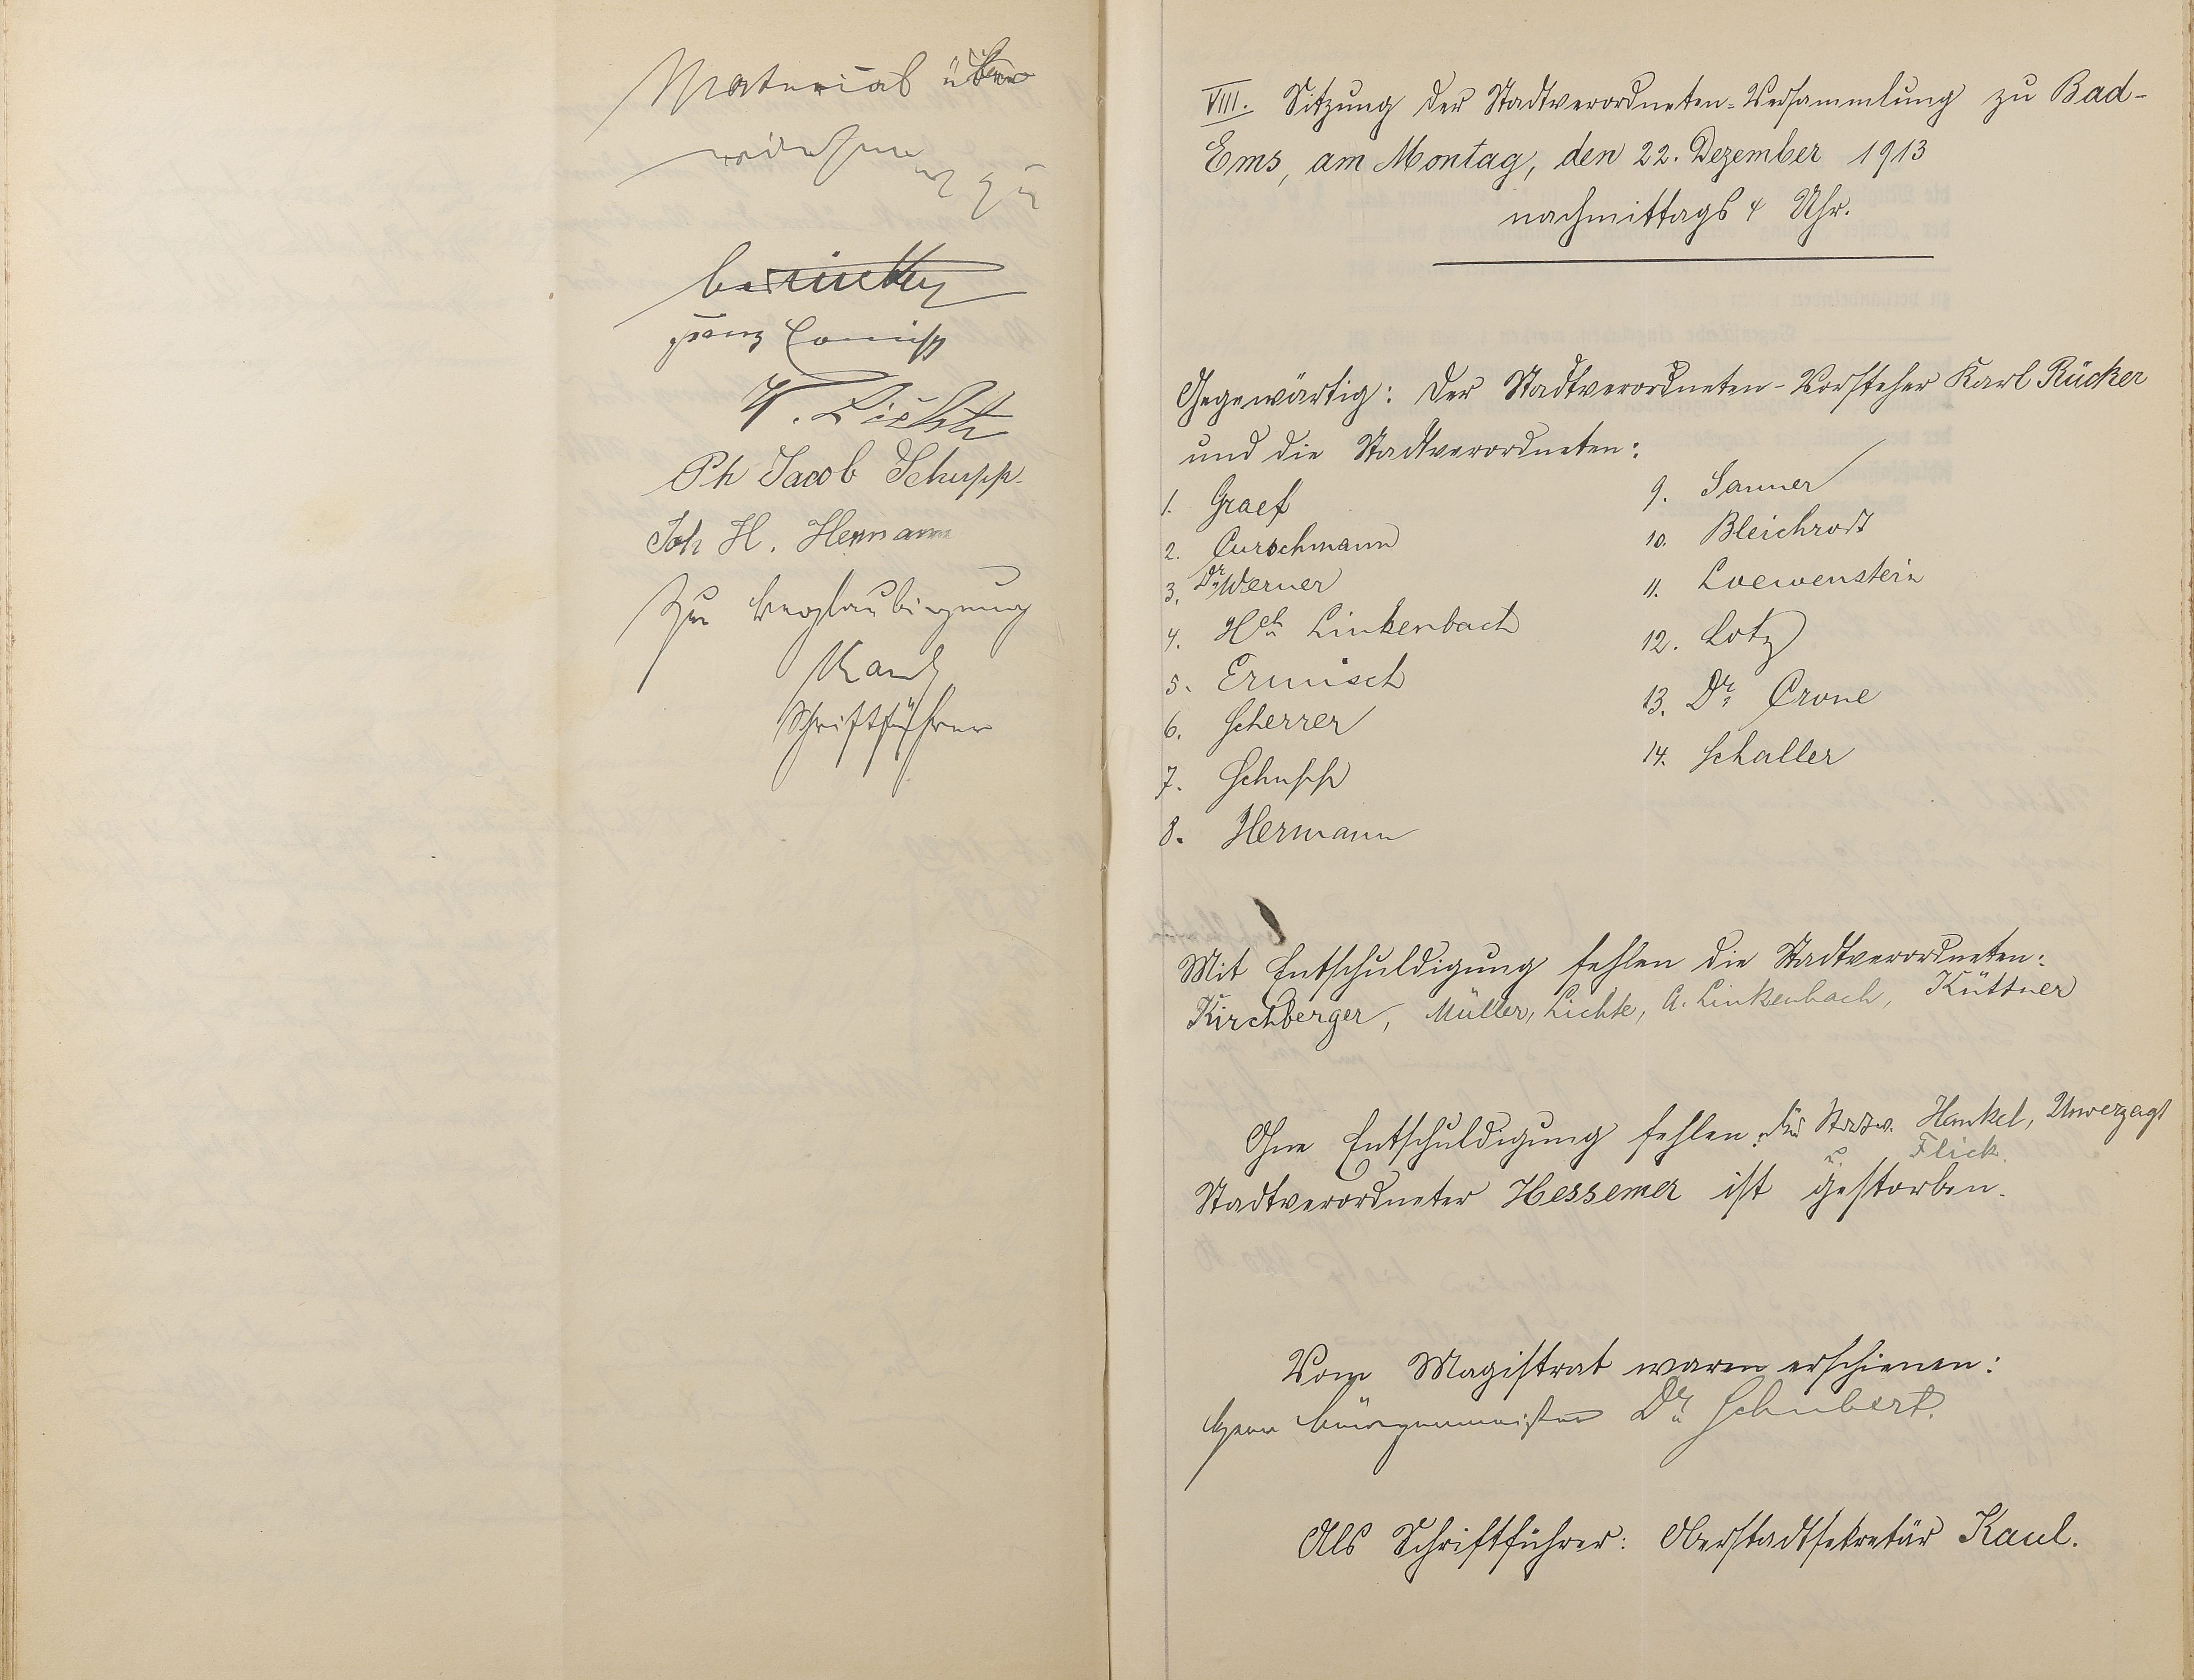 Material über
wiesen
Franz Ermisch
W. Lichte
Ph Jacob Schupp
Joh H. Hermann
Zur Beglaubigung
Kaul
Schriftführer
VIII. Sitzung der Stadtverordneten-Versammlung zu Bad-
Ems, am Montag, den 22. Dezember 1913
nachmittags 4 Uhr.
Gegenwärtig: Der Stadtverordneten-Vorsteher Karl Rücker
und die Stadtverordneten:
1. Graef
2. Curschmann
3. Dr. Werner
4. Hch. Linkenbach
5. Ermisch
6. Scherrer
7. Schupp
8. Hermann
9. Sanner
10. Bleichrodt
11. Loewenstein
12. Lotz
13. Dr. Crone
14. Schaller
Mit Entschuldigung fehlen die Stadtverordneten:
Kirchberger, Müller, Lichte, A. Linkenbach, Küttner
Ohne Entschuldigung fehlen die Stadtv. Hankel, Unverzagt
u. Flick.
Stadtverordneter Hessemer ist gestorben.
Vom Magistrat waren erschienen:
Herr Bürgermeister Dr. Schubert.
Als Schriftführer: Oberstadtsekretär Kaul.